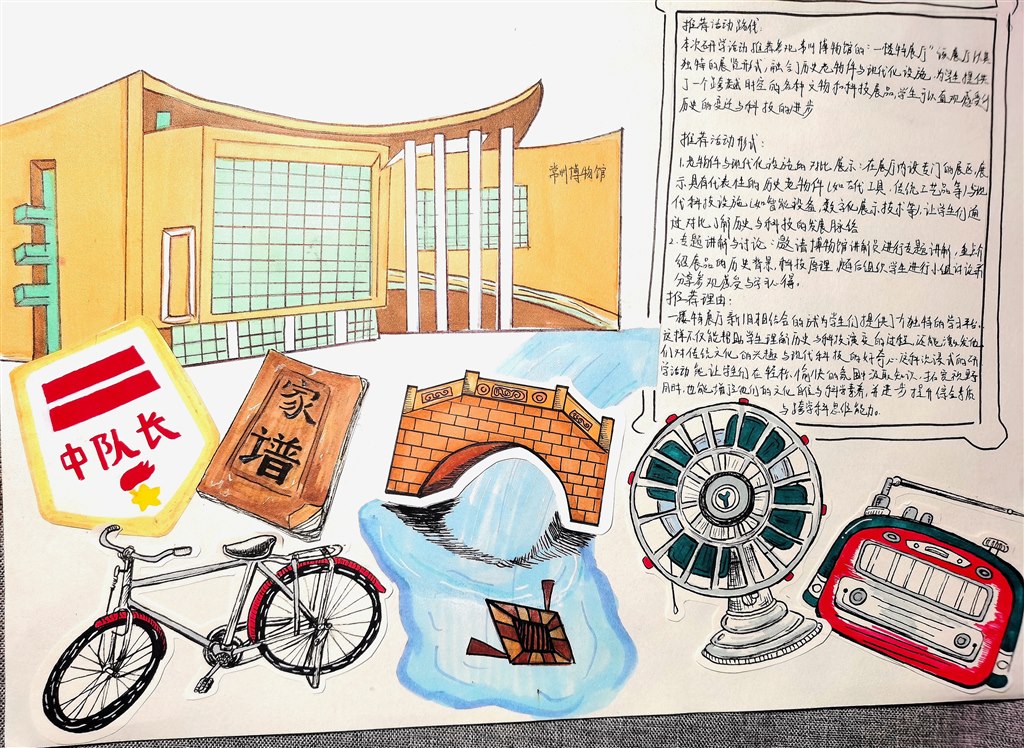 推荐活动路线:
本次研学活动推荐参观常州博物馆的:一楼特展厅"该展厅以其
独特的展览形式,融合了历史老物件与现代化设施,为学生提供
了一个跨越时空的各种文物和科技展品,学生可以直观感受到
历史的变迁与科技的进步
推荐活动形式:
1.老物件与现代化设施的对比展示:在展厅内设专门的展区,展
示具有代表性的历史老物件(如古代工具、传统工艺品等)与现
代科技设施(如智能设备、数字化展示技术等),让学生们通
过对比,了解历史与科技的发展脉络
2.专题讲解与讨论:邀请博物馆讲解员进行专题讲解,
绍展品的历史背景、科技原理,随后组织学生进行小组讨论
分享参观感受与心得。
推荐理由:
一楼特展厅新旧相结合的试为学生们提供了个独特的学习平台,
这样不仅能帮助学生理解历史与科技演变的过程,还能激发他
们对传统文化的兴趣与现代科技的好奇心这种沉浸式的研
学活动能让学生们在轻松、愉快的氛围中汲取知识、拓宽视野
同时,也能增强他们的文化自信与科学素养,并进一步提升综合素质
与跨学科思维能力。
常州博物馆
中队长
家
谱